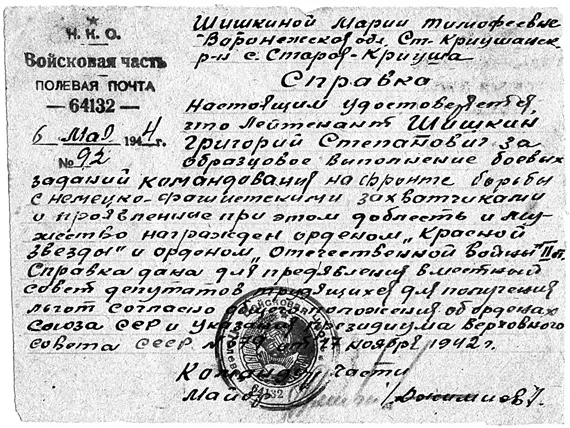 Н.К.О.
Войсковая часть
ПОЛЕВАЯ ПОЧТА
—64132—
6 Мая 1944 г.
№ 92
Шишкиной Марии Тимофеевне
Воронежская обл. Ст-Криушанск
р-н с. Старая-Криуша
Справка
Настоящим удостоверяется,
что Лейтенант Шишкин
Григорий Степанович за
образцовое выполнение боевых
заданий командования на фронте борьбы
с немецко-фашистскими захватчиками
и проявленные при этом доблесть и му-
жество награжден орденом „Красной
Звезды" и орденом „Отечественной Войны" II ст.
Справка дана для предявления в местный
совет депутатов трудящихся для получения
льгот согласно общего положения об орденах
Союза ССР и Указания Президиума Верховного
Совета СССР № 79 от 17 ноября 1942 г.
Командир части
Майор
ВОЙСКОВАЯ
64132